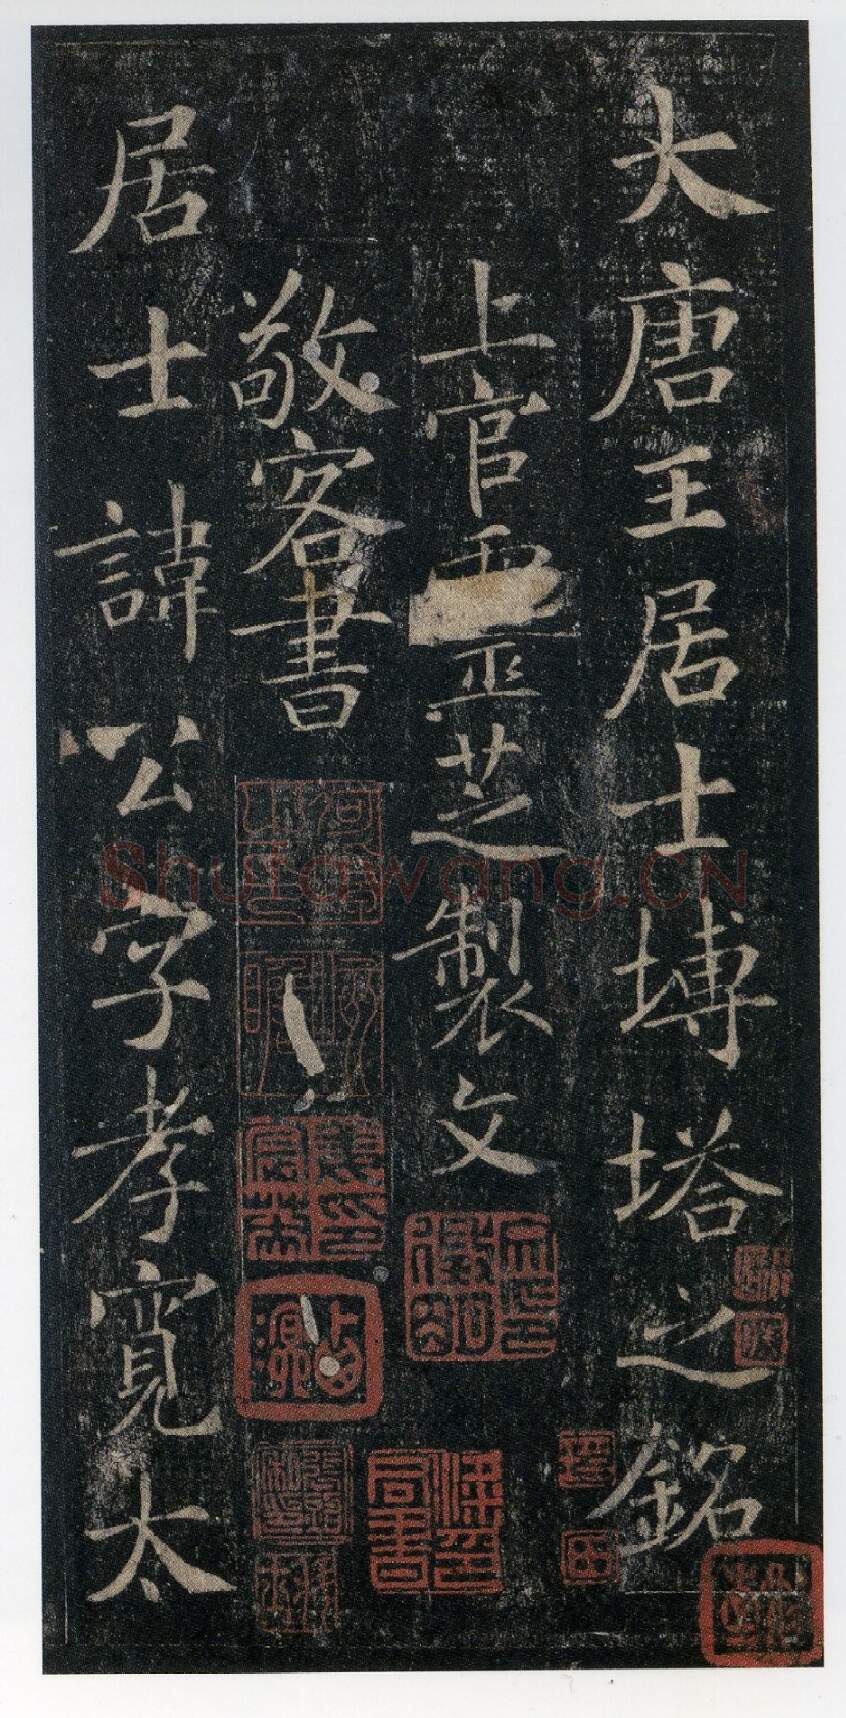 大唐王居士塼塔之銘
上官靈芝製文
敬客書
居士諱公字孝寬太
Shufawang.CN